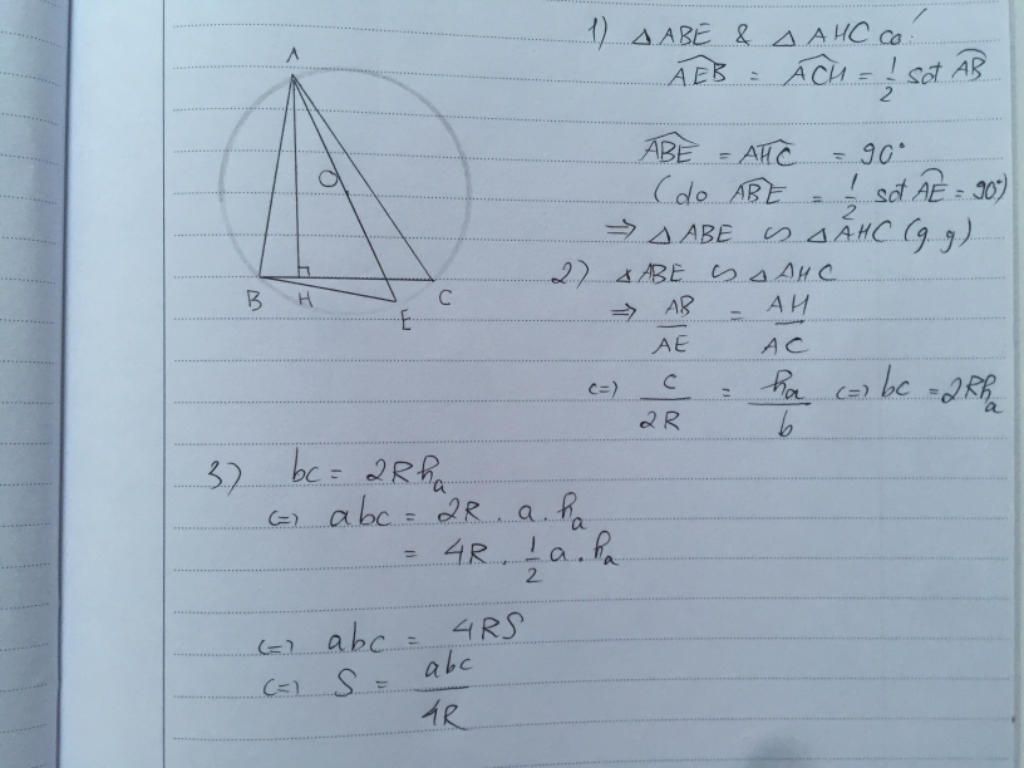 1) △ABE & △AHC có:
AEB = ACH = 1/2 sđt AB
ABE = AHC = 90°
(do ABE = 1/2 sđt AE = 90°)
⇒ △ABE ∽ △AHC (g.g)
2) △ABE ∽ △AHC
⇒ AB/AE = AH/AC
<=> c/2R = ha/b <=> bc = 2Rha
3) bc = 2Rha
<=> abc = 2R . a . ha
= 4R . 1/2 a . ha
<=> abc = 4RS
<=> S = abc/4R
A
O
B H C
E